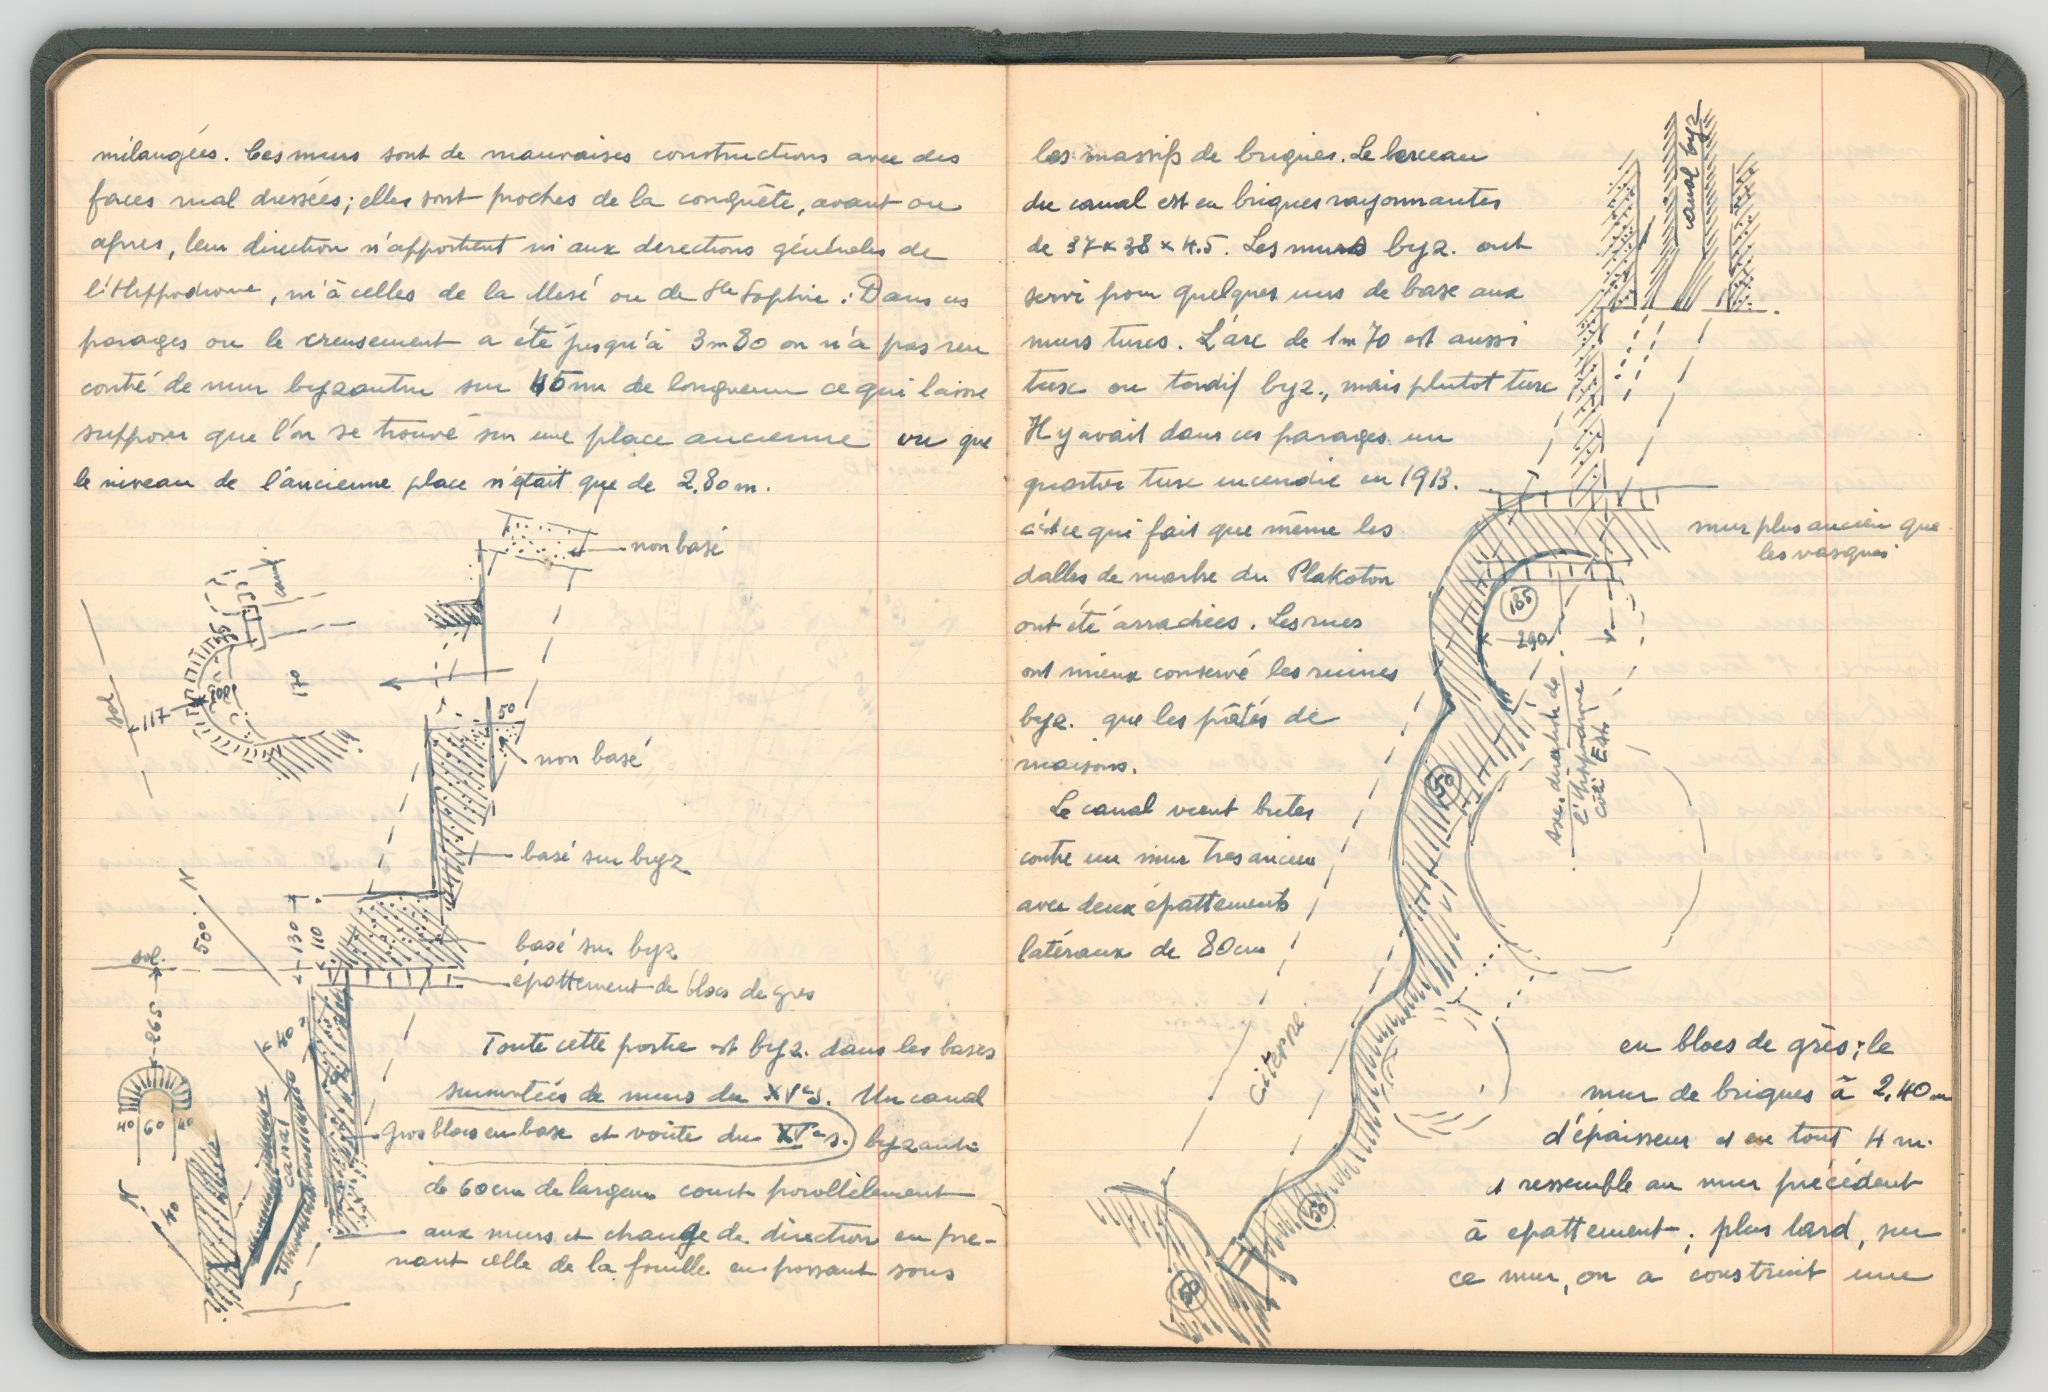 mélangées. Ces murs sont de mauvaises constructions avec des
faces mal dressées; elles sont proches de la conquête, avant ou
après, leur direction n'appartient ni aux directions générales de
l'Hippodrome, ni à celles de la Mesé ou de Ste Sophie. Dans ces
parages ou le creusement a été jusqu'à 3m80 on n'a pas ren
contré de mur byzantin sur 45m de longueur ce qui laisse
supposer que l'on se trouve sur une place ancienne vu que
le niveau de l'ancienne place n'était que de 2,80m.
non basé
canal
sol
117
200
170
50
non basé
basé sur byz
N
500
130
110
basé sur byz
sol.
épattement de blocs de grès
265
40
40 60 40
canal
N
40
Toute cette partie est byz. dans les bases
surmontées de murs du XVe s. Un canal
gros blocs en base et voûte du XVe s. byzantin
de 60cm de largeur court parallèlement
aux murs et change de direction en pre-
nant celle de la fouille en passant sous
les massifs de briques. Le berceau
du canal est en briques rayonnantes
de 37 x 38 x 4.5. Les murs byz. ont
servi pour quelques uns de base aux
murs turcs. L'arc de 1m70 est aussi
turc ou tardif byz., mais plutot turc
Il y avait dans ces parages un
quartier turc incendié en 1913.
c'est ce qui fait que même les
dalles de marbre du Plakoton
ont été arrachées. Les rues
ont mieux conservé les ruines
byz. que les pâtés de
maisons.
Le canal vient buter
contre un mur très ancien
avec deux épattements
latéraux de 80cm
canal byz
mur plus ancien que
les vasques
185
290
Axe du stade de
l'hippodrome
côté Est.
50
Citerne
50
50
en blocs de grès; le
mur de briques à 2,40m
d'épaisseur et en tout 4m.
et ressemble au mur précédent
à epattement; plus tard, sur
ce mur, on a construit une